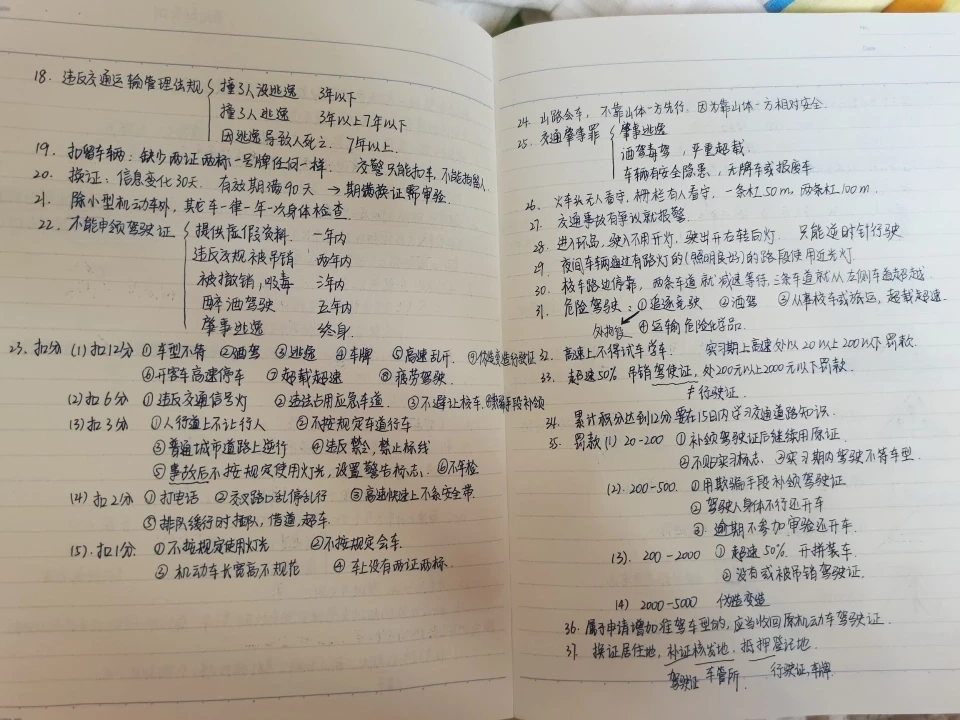 18. 违反交通运输管理法规 撞了人没逃逸 3年以下
撞了人逃逸 3年以上7年以下
因逃逸导致人死亡. 7年以上.
19. 扣留车辆: 缺少两证两标一号牌任何一样. 交警只能扣车,不能拘留人.
20. 换证: 信息变化30天. 有效期满90天 → 期满换证需审验.
21. 除小型机动车外, 其它车一律一年一次身体检查.
22. 不能申领驾驶证 提供虚假资料. 一年内
违反法规被吊销 两年内
被撤销,吸毒 三年内
醉酒驾驶 五年内
肇事逃逸 终身.
23. 扣分 (1) 扣12分 ①车型不符 ②酒驾 ③逃逸 ④车牌 ⑤高速乱开. ⑨伪造变造行驶证
⑥开客车高速停车 ⑦超载超速 ⑧疲劳驾驶.
(2) 扣6分 ①违反交通信号灯 ②违法占用应急车道. ③不避让校车. ④欺骗手段补领
(3) 扣3分 ①人行道上不让行人 ②不按规定车道行车
③普通城市道路上逆行 ④违反禁令,禁止标线
⑤事故后不按规定使用灯光,设置警告标志. ⑥不年检
(4) 扣2分 ①打电话 ②交叉路口乱停乱行 ③高速快速上不系安全带.
⑤排队缓行时插队,借道,超车.
(5). 扣1分: ①不按规定使用灯光 ②不按规定会车.
③ 机动车长宽高不规范 ④ 车上没有两证两标.
24. 山路会车, 不靠山体一方先行, 因为靠山体一方相对安全.
25. 交通肇事罪 肇事逃逸
酒驾毒驾, 严重超载.
车辆有安全隐患, 无牌车或报废车
26. 火车头无人看守, 栅栏有人看守, 一条杠50m, 两条杠100m.
27. 交通事故有争议就报警.
28. 进入环岛, 驶入不用开灯, 驶出开右转向灯. 只能逆时针行驶
29. 夜间车辆通过有路灯的(照明良好)的路段使用近光灯.
30. 校车路边停靠, 两条车道就减速等待, 三条车道就从左侧车道超越.
31. 危险驾驶: ①追逐竞驶 ②酒驾 ③从事校车或旅运, 超载超速.
处拘役 ④运输危险化学品.
32. 高速上不得试车学车. 实习期上高速处以20以上200以下罚款.
33. 超速50%. 吊销驾驶证, 处200元以上2000元以下罚款.
≠行驶证.
34. 累计积分达到12分要在15日内学习交通道路知识.
35. 罚款(1) 20-200 ①补领驾驶证后继续用原证.
②不贴实习标志. ③实习期内驾驶不符车型.
(2). 200-500. ①用欺骗手段补领驾驶证
② 驾驶人身体不行还开车
③. 逾期不参加审验还开车.
(3). 200-2000 ① 超速50%. 开拼装车.
②没有或被吊销驾驶证.
(4) 2000-5000 伪造变造
36. 属于申请增加准驾车型的, 应当收回原机动车驾驶证.
37. 换证居住地, 补证核发地, 抵押登记地.
驾驶证 车管所. 行驶证,车牌